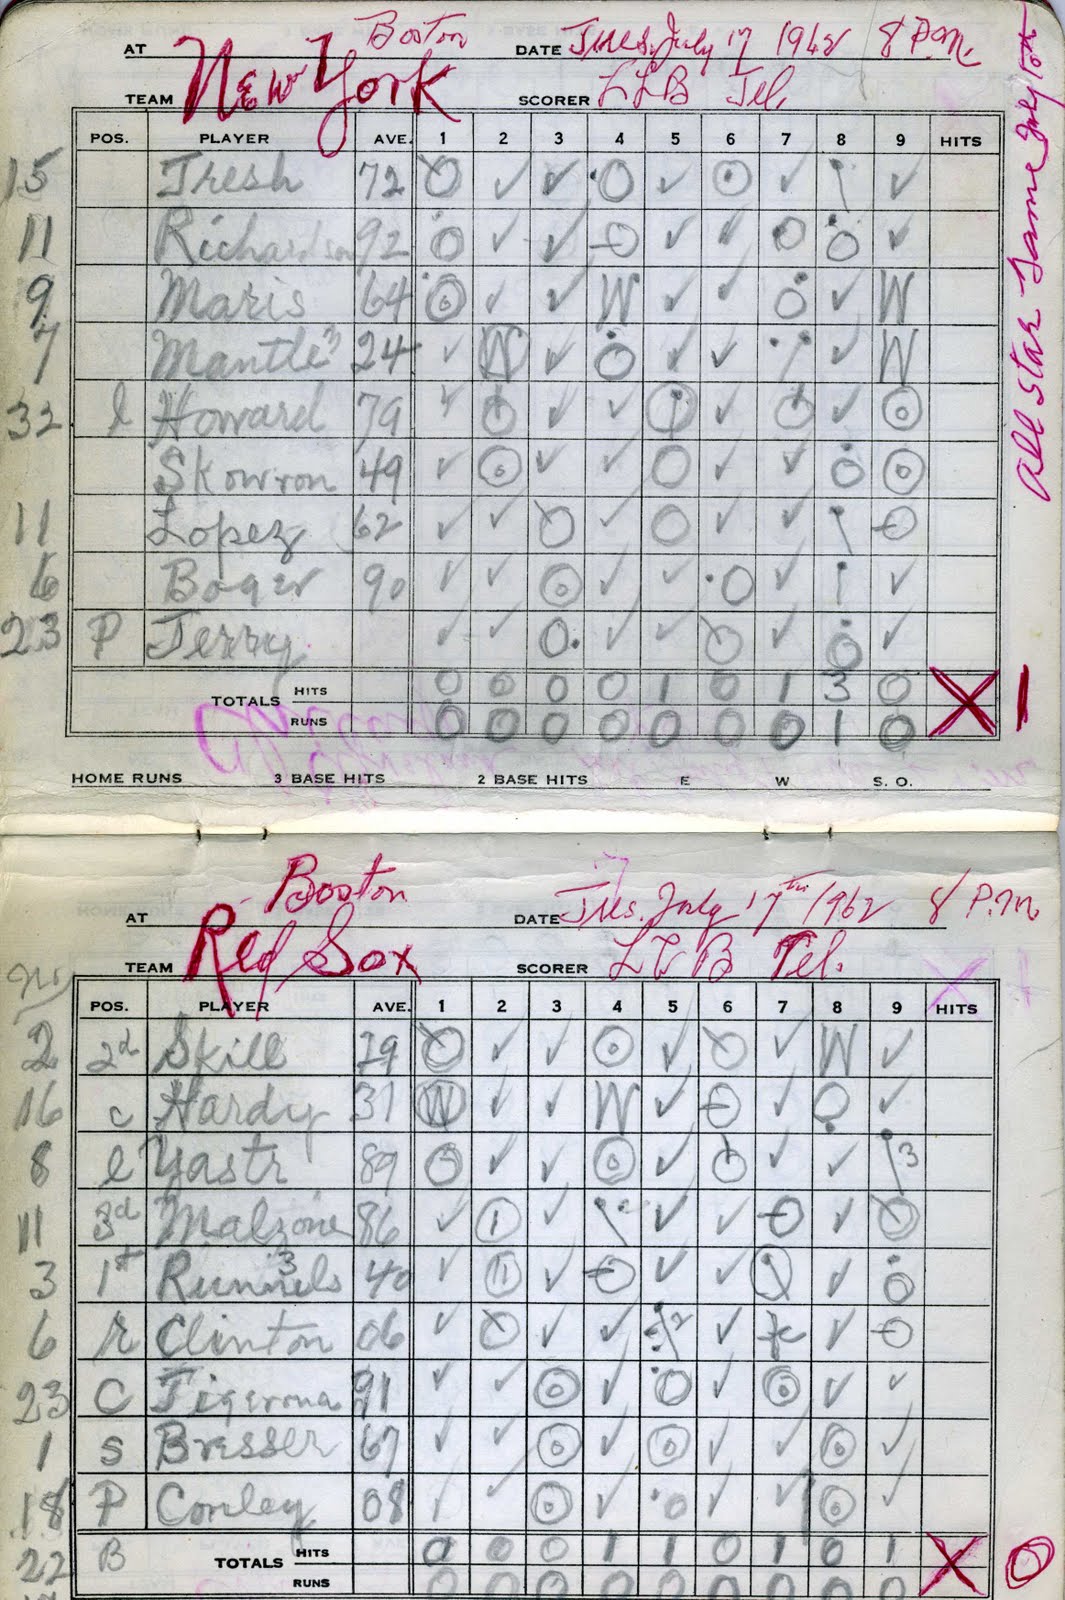 AT Boston DATE Tues. July 17 1962 8 P.M.
TEAM New York SCORER LLB Tel.
POS. PLAYER AVE. 1 2 3 4 5 6 7 8 9 HITS
15 Tresh 72
11 Richardson 92
9 Maris 64 W W
7 Mantle 24 W W
32 l Howard 79
Skowron 49
11 Lopez 62
6 Boyer 90
23 P Terry
TOTALS HITS 0 0 0 0 1 0 1 3 0
RUNS 0 0 0 0 0 0 0 1 0 X 1
HOME RUNS 3 BASE HITS 2 BASE HITS E W S. O.
All Star Game July 10th
AT Boston DATE Tues. July 17th 1962 8 P.M.
TEAM Red Sox SCORER LLB Tel.
POS. PLAYER AVE. 1 2 3 4 5 6 7 8 9 HITS
2 2d Skill 29 W
16 c Hardy 37 W W
8 l Yastr 89 3
11 3d Malzone 86
3 1st Runnels 3 40
6 r Clinton 06
23 C Tigerona 91
1 S Bresser 67
18 P Conley 08
22 B TOTALS HITS 0 0 0 1 1 0 1 0 1
RUNS 0 0 0 0 0 0 0 0 0 X 0